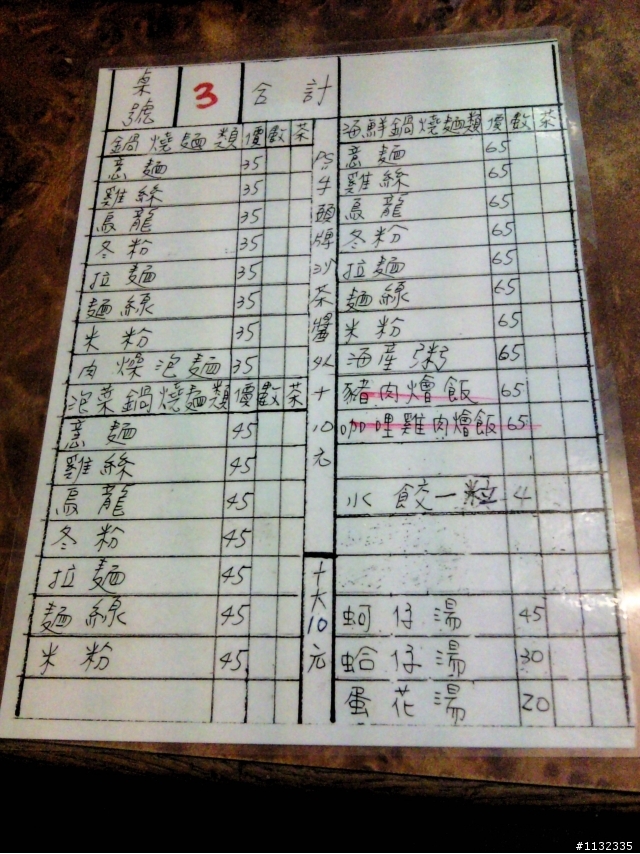 桌號 3 合計
鍋燒麵類 價 數 茶
意麵 35
雞絲 35
烏龍 35
冬粉 35
拉麵 35
麵線 35
米粉 35
肉燥泡麵 35
泡菜鍋燒麵類 價 數 茶
意麵 45
雞絲 45
烏龍 45
冬粉 45
拉麵 45
麵線 45
米粉 45
牛頭牌沙茶醬 十10元
十大10元
海鮮鍋燒麵類 價 數 茶
意麵 65
雞絲 65
烏龍 65
冬粉 65
拉麵 65
麵線 65
米粉 65
海產粥 65
豬肉燴飯 65
咖哩雞肉燴飯 65
水餃一粒 4
蚵仔湯 45
蛤仔湯 30
蛋花湯 20
#1132335